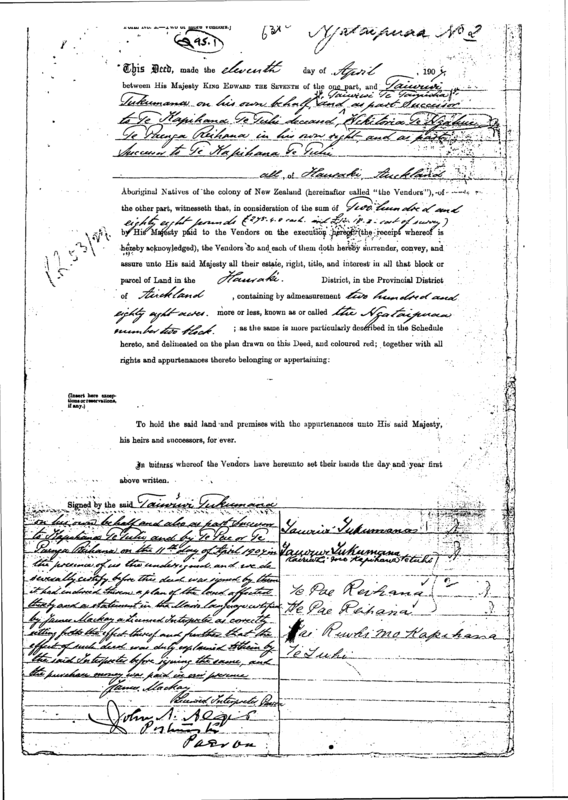 Ngataipuaa No 2
This Deed, made the eleventh day of April , 1907,
between His Majesty KING EDWARD THE SEVENTH of the one part, and Taiwiwi
Tukumana on his own behalf and as part Successor
to Te Kapihana Te Tuhi deceased,
Te Paruga Reihana in his own right and as part
Successor to Te Kapihana Te Tuhi
all, of Hauraki, Auckland
Aboriginal Natives of the colony of New Zealand (hereinafter called "the Vendors"), of
the other part, witnesseth that, in consideration of the sum of Two hundred and
eighty eight pounds
by His Majesty paid to the Vendors on the execution hereof (the receipt whereof is
hereby acknowledged), the Vendors do and each of them doth hereby surrender, convey, and
assure unto His said Majesty all their estate, right, title, and interest in all that block or
parcel of Land in the Hauraki District, in the Provincial District
of Auckland , containing by admeasurement two hundred and
eighty eight acres more or less, known as or called the Ngataipuaa
number two block ; as the same is more particularly described in the Schedule
hereto, and delineated on the plan drawn on this Deed, and coloured red; together with all
rights and appurtenances thereto belonging or appertaining:
(Insert here excep-
tions or reservations,
if any.)
To hold the said land and premises with the appurtenances unto His said Majesty,
his heirs and successors, for ever.
In witness whereof the Vendors have hereunto set their hands the day and year first
above written.
Signed by the said Taiwiwi Tukumana
on his own behalf and also as part Successor
to Kapihana Te Tuhi and by Te Pae or Te
Paruga Reihana on the 11th day of April 1907 in
the presence of us the undersigned and we do
severally certify before this deed was signed by them
it had indorsed thereon a plan of the land affected
thereby and a statement in the Maori language certified
by James Mackay a Licensed Interpreter as correctly
setting forth the effect thereof and further that the
effect of such deed was duly explained to them by
the said Interpreter before signing the same, and
the purchase money was paid in our presence
James Mackay
Licensed Interpreter Paeroa
John N. Alexr
Postmaster
Paeroa
Tauriri Tukumana
Tauriri Tukumana
Kairiwhi mo Kapihana Te Tuhi
Te Pae Reihana
Te Pae Reihana
Kai Riwhi mo Kapihana
Te Tuhi